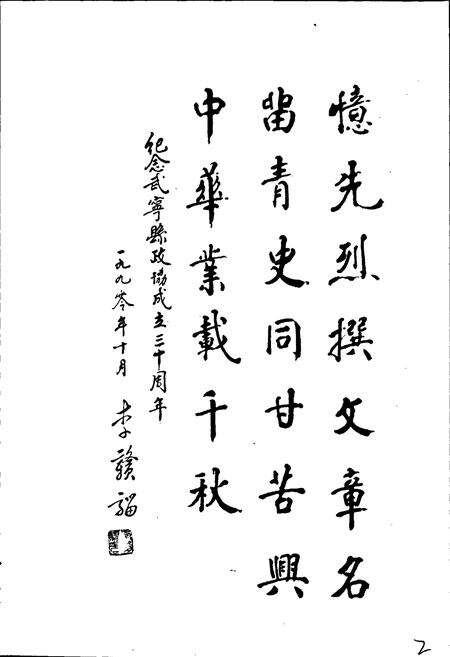 憶先烈撰文章名
留青史同甘苦興
中華業載千秋
紀念武寧縣政協成立三十周年
一九九零年十月 李贛
2